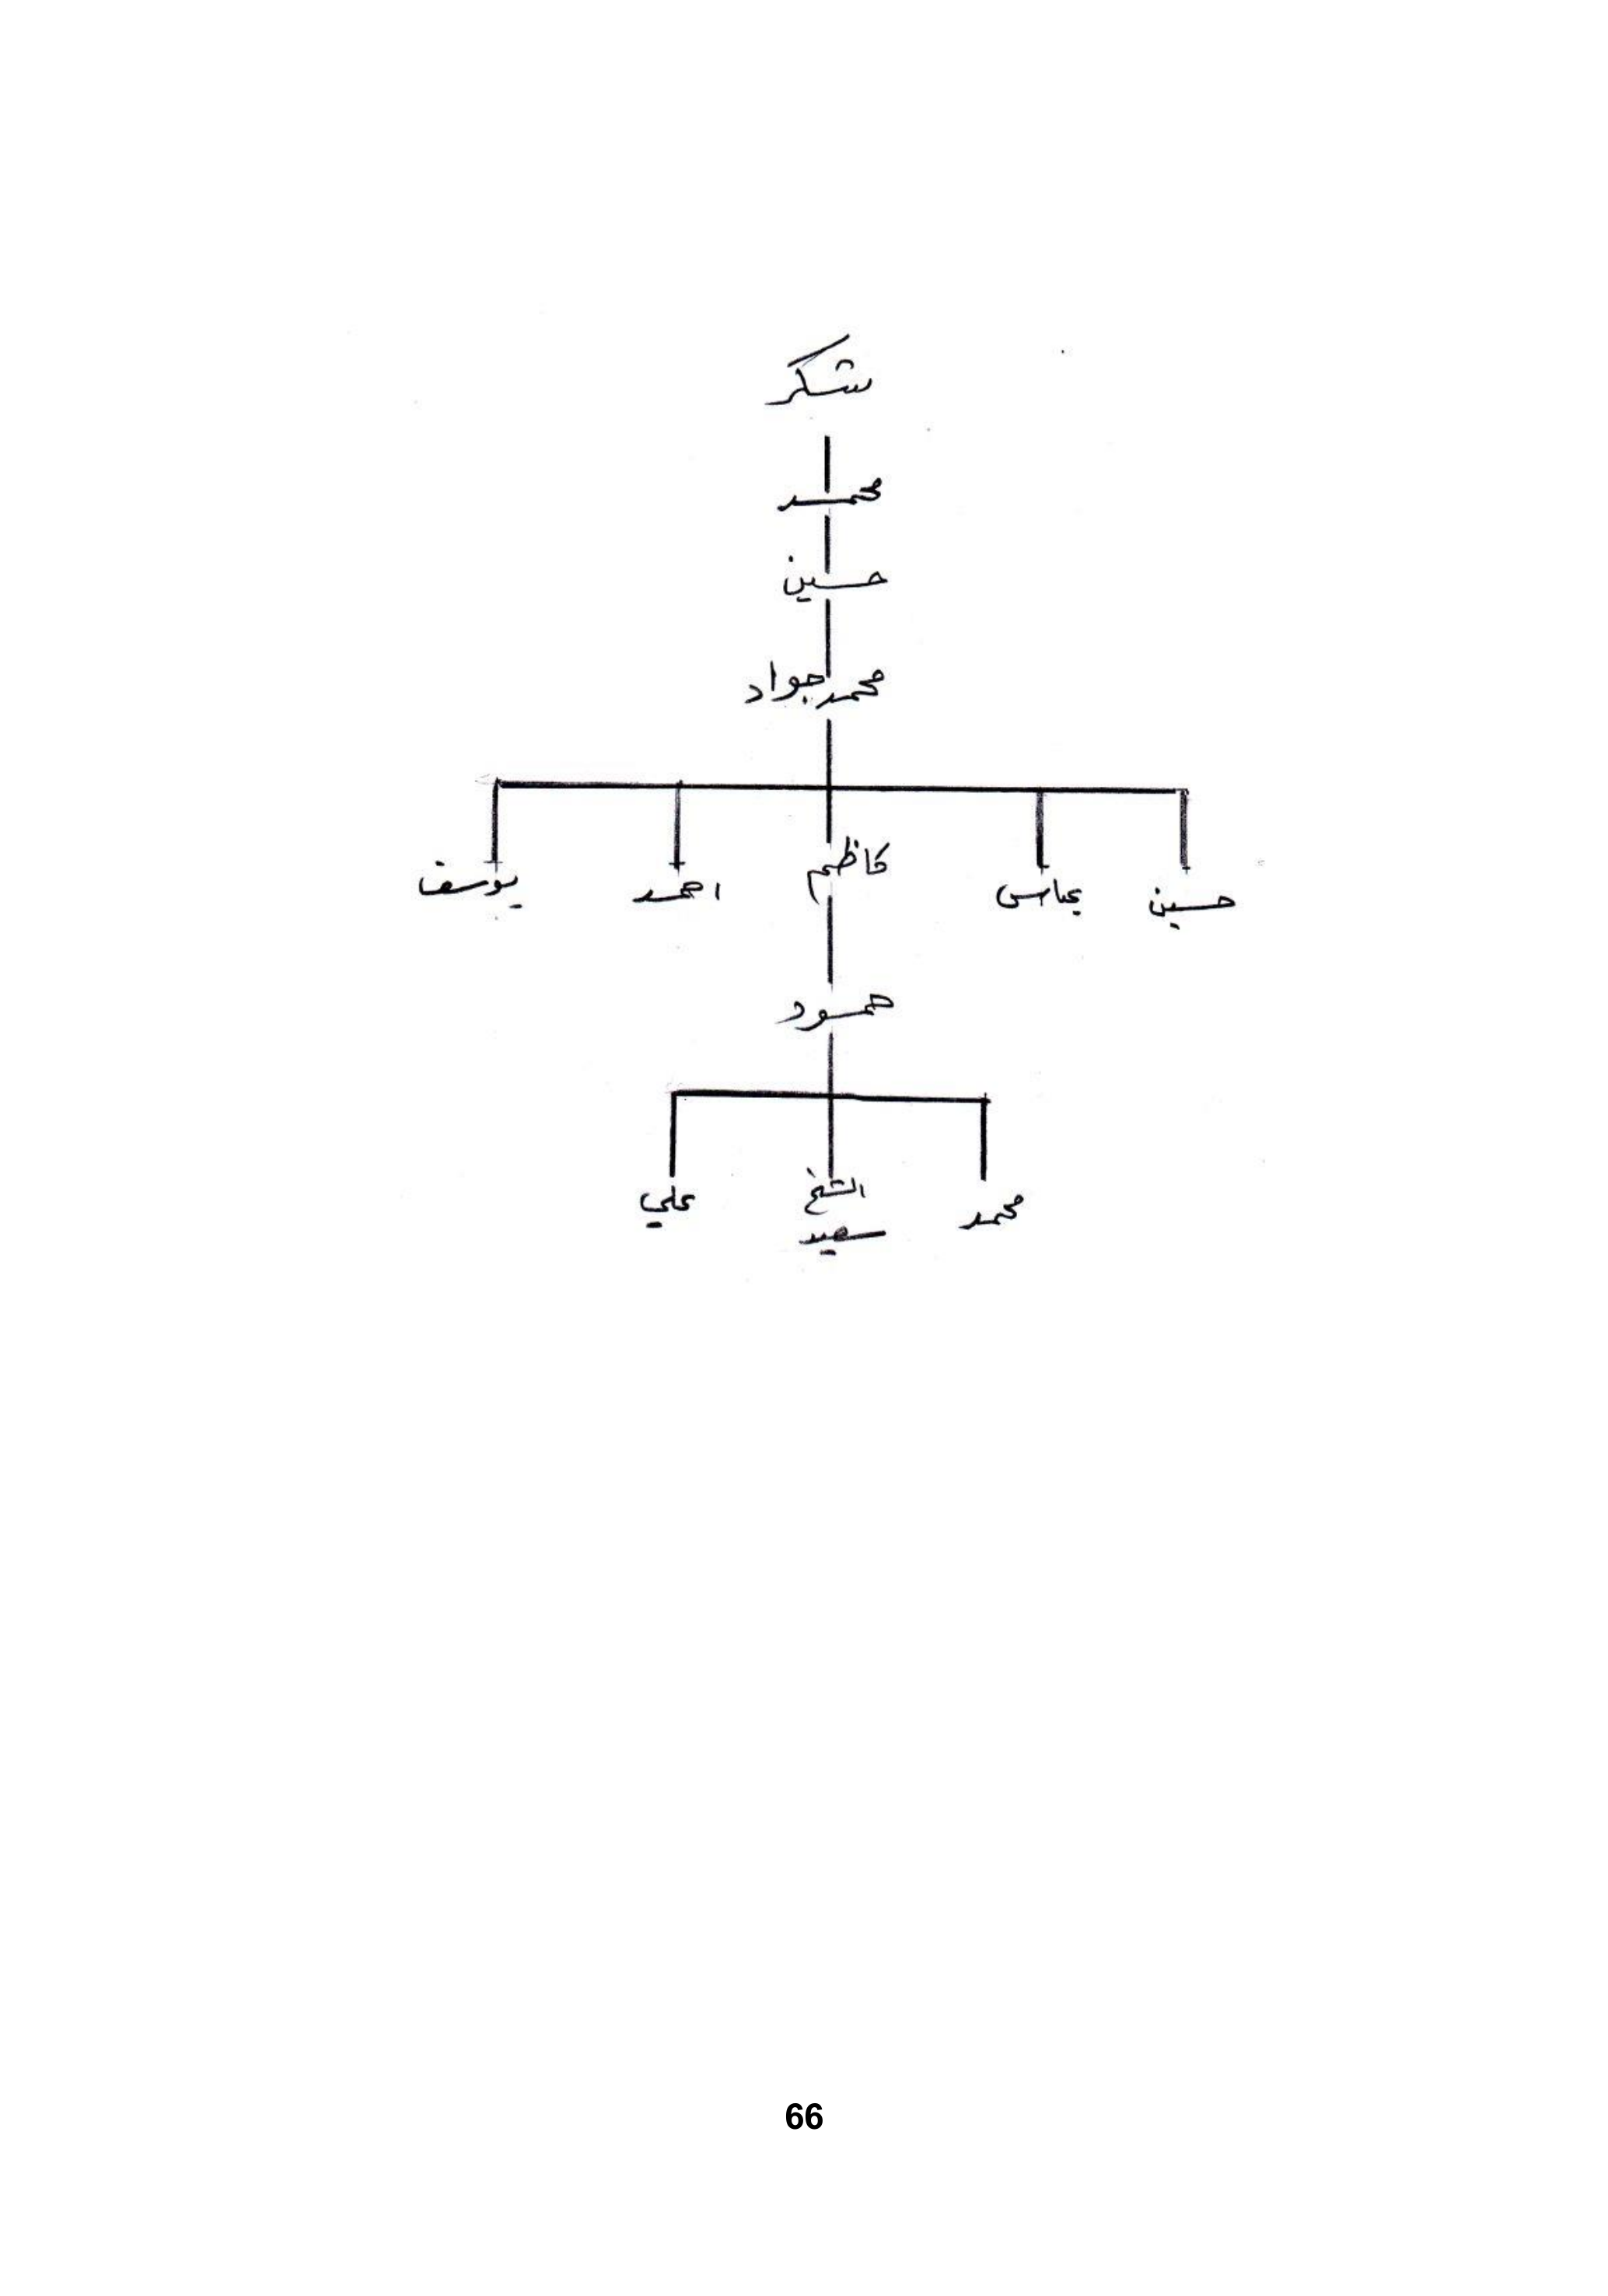 شكر
محمد
حسين
محمد جواد
حسين عباس كاظم احمد يوسف
حمود
محمد الشيخ علي
سعيد
66